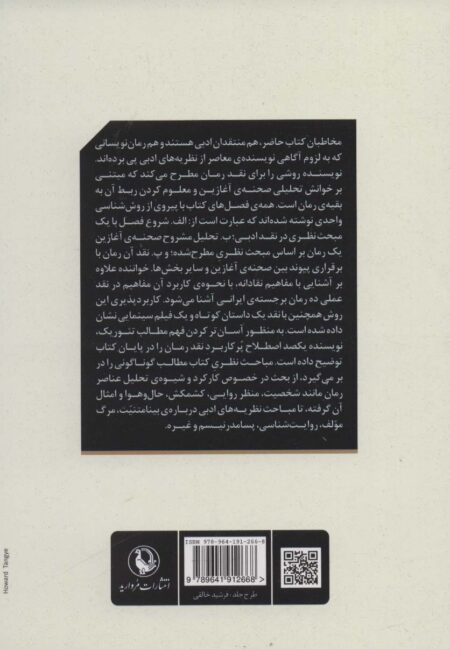 مخاطبان کتاب حاضر، هم منتقدان ادبی هستند و هم رمان‌نویسانی
که به لزوم آگاهی نویسنده‌ی معاصر از نظریه‌های ادبی پی برده‌اند.
نویسنده روشی را برای نقد رمان مطرح می‌کند که مبتنی
بر خوانش تحلیلی صحنه‌ی آغازین و معلوم کردن ربط آن به
بقیه‌ی رمان است. همه‌ی فصل‌های کتاب با پیروی از روش‌شناسی
واحدی نوشته شده‌اند که عبارت است از: الف. شروع فصل با یک
مبحث نظری در نقد ادبی؛ ب. تحلیل مشروح صحنه‌ی آغازین
یک رمان بر اساس مبحث نظری مطرح‌شده؛ و پ. نقد آن رمان با
برقراری پیوند بین صحنه‌ی آغازین و سایر بخش‌ها. خواننده علاوه
بر آشنایی با مفاهیم نقادانه، با نحوه‌ی کاربرد آن مفاهیم در نقد
عملی ده رمان برجسته‌ی ایرانی آشنا می‌شود. کاربردپذیری این
روش همچنین با نقد یک داستان کوتاه و یک فیلم سینمایی نشان
داده شده است. به منظور آسان‌تر کردن فهم مطالب تئوریک،
نویسنده یکصد اصطلاح پُرکاربرد نقد رمان را در پایان کتاب
توضیح داده است. مباحث نظری کتاب مطالب گوناگونی را در
بر می‌گیرد، از بحث در خصوص کارکرد و شیوه‌ی تحلیل عناصر
رمان مانند شخصیت، منظر روایی، کشمکش، حال‌وهوا و امثال
آن گرفته، تا مباحث نظریه‌های ادبی درباره‌ی بینامتنیّت، مرگ
مؤلف، روایت‌شناسی، پسامدرنیسم و غیره.
Howard Tangye
انتشارات مروارید
ISBN 978-964-191-266-8
9 789641 912668
طرح جلد: فرشید خالقی